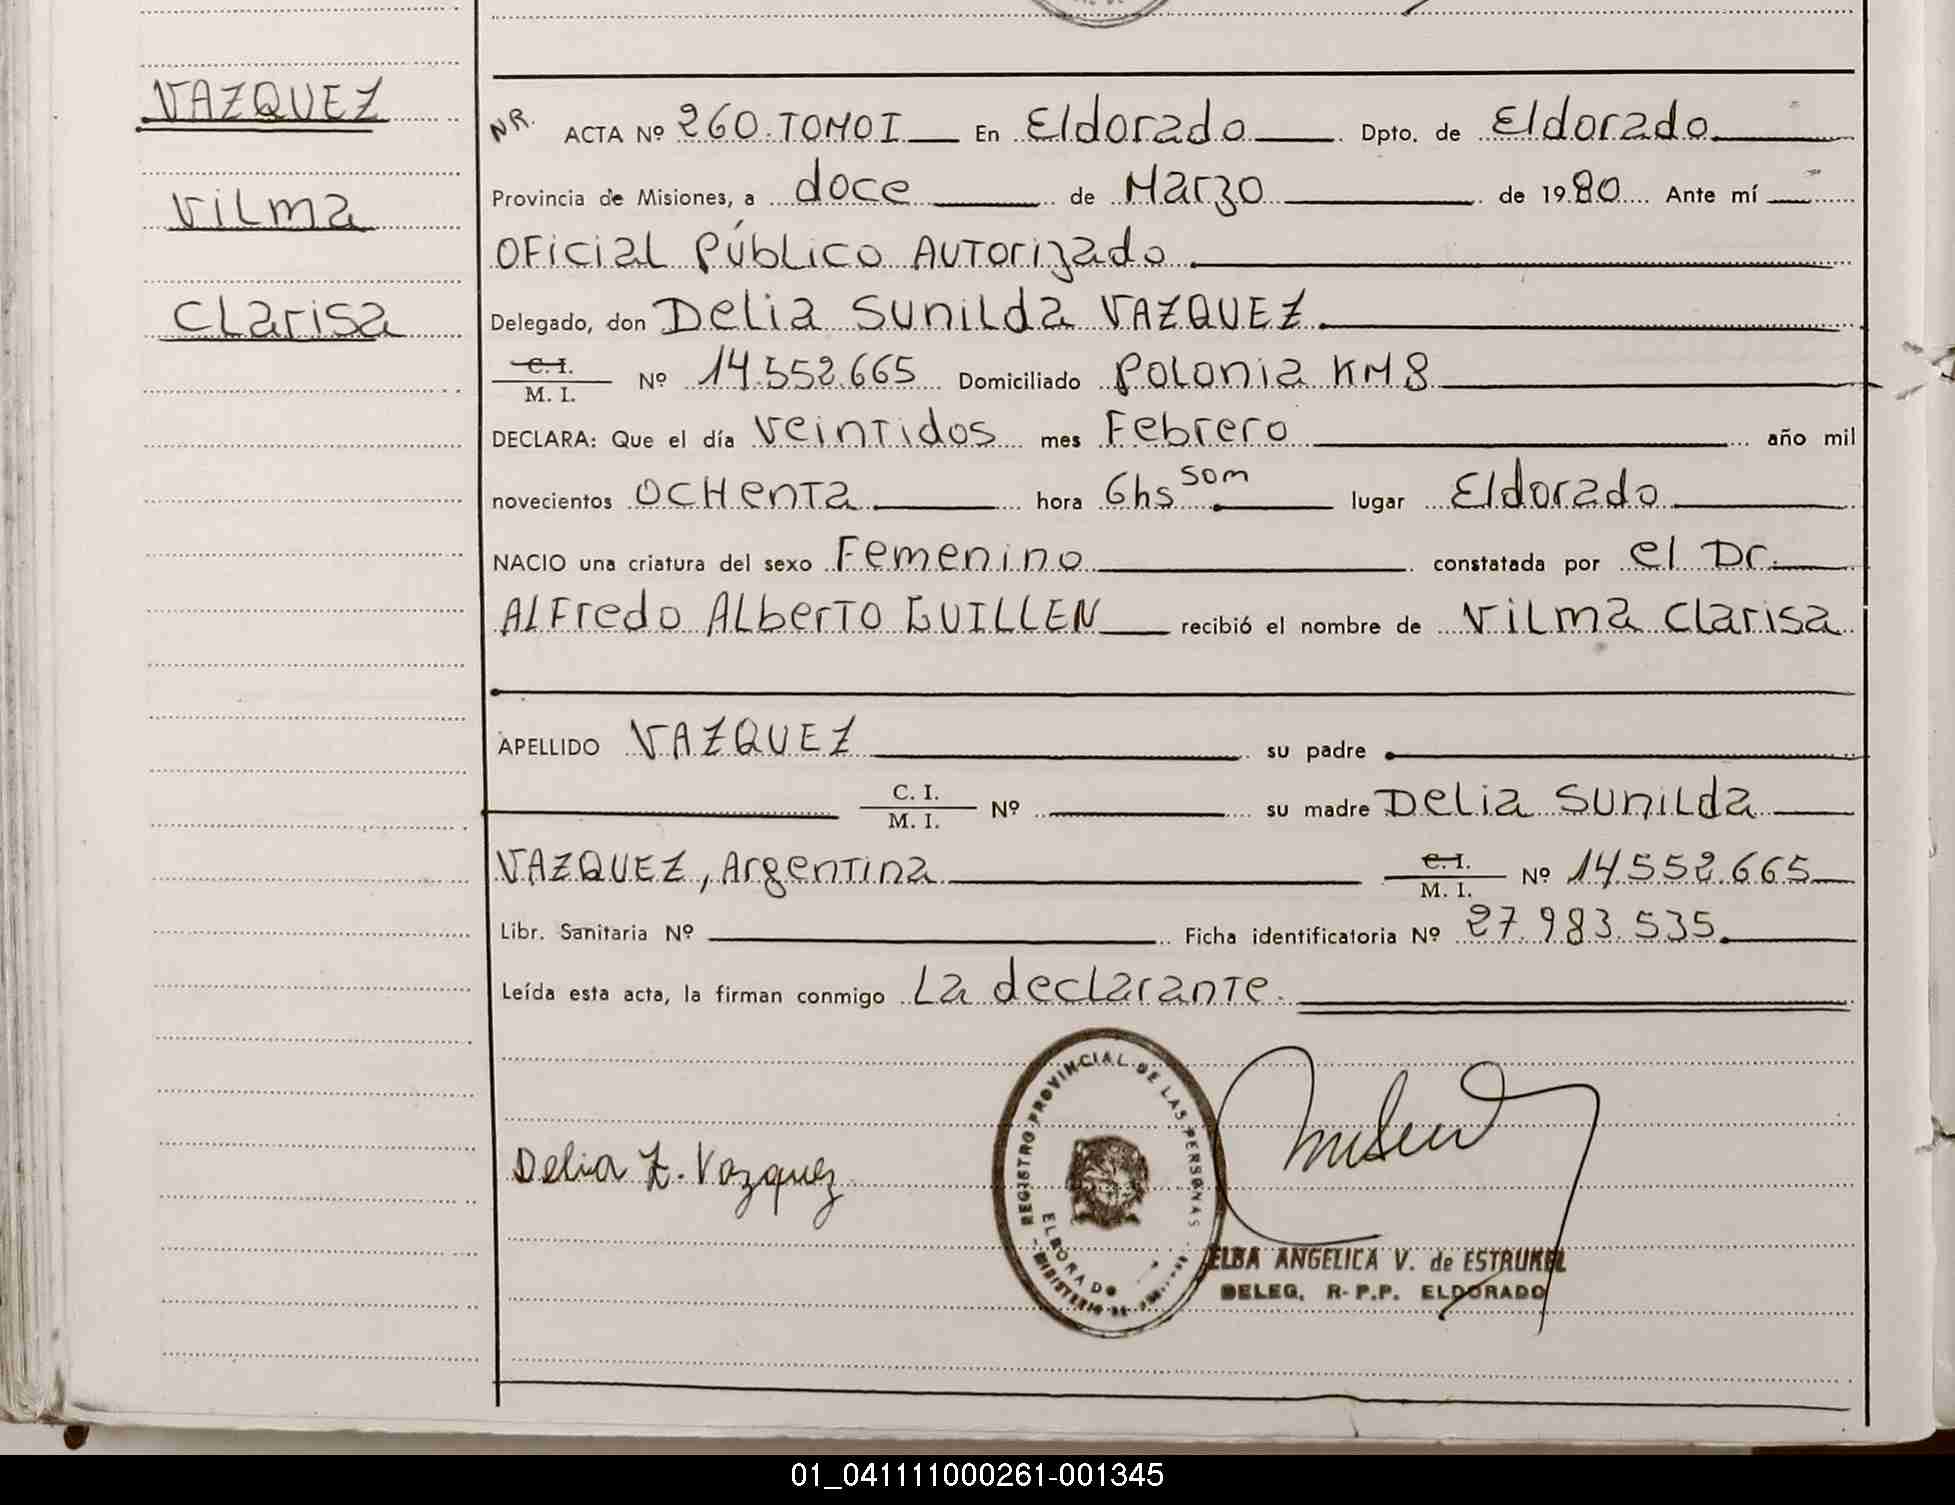 VAZQUEZ
Vilma
Clarisa
NR. ACTA Nº 260 TOMO I En Eldorado Dpto. de Eldorado
Provincia de Misiones, a doce de Marzo de 1980 Ante mí
Oficial Público Autorizado
Delegado, don Delia Sunilda VAZQUEZ
C. I. / M. I. Nº 14.552.665 Domiciliado Polonia KM 8
DECLARA: Que el día veintidos mes Febrero año mil
novecientos ochenta hora 6hs 50m lugar Eldorado
NACIO una criatura del sexo Femenino constatada por el Dr.
Alfredo Alberto GUILLEN recibió el nombre de Vilma Clarisa
APELLIDO VAZQUEZ su padre
C. I. / M. I. Nº su madre Delia Sunilda
VAZQUEZ, Argentina C. I. / M. I. Nº 14.552.665
Libr. Sanitaria Nº Ficha identificatoria Nº 27.983.535
Leída esta acta, la firman conmigo La declarante.
Delia Z. Vazquez
REGISTRO PROVINCIAL DE LAS PERSONAS
ELDORADO
MINISTERIO DE
ELBA ANGELICA V. de ESTRUKEL
DELEG. R. P.P. ELDORADO
01_041111000261-001345